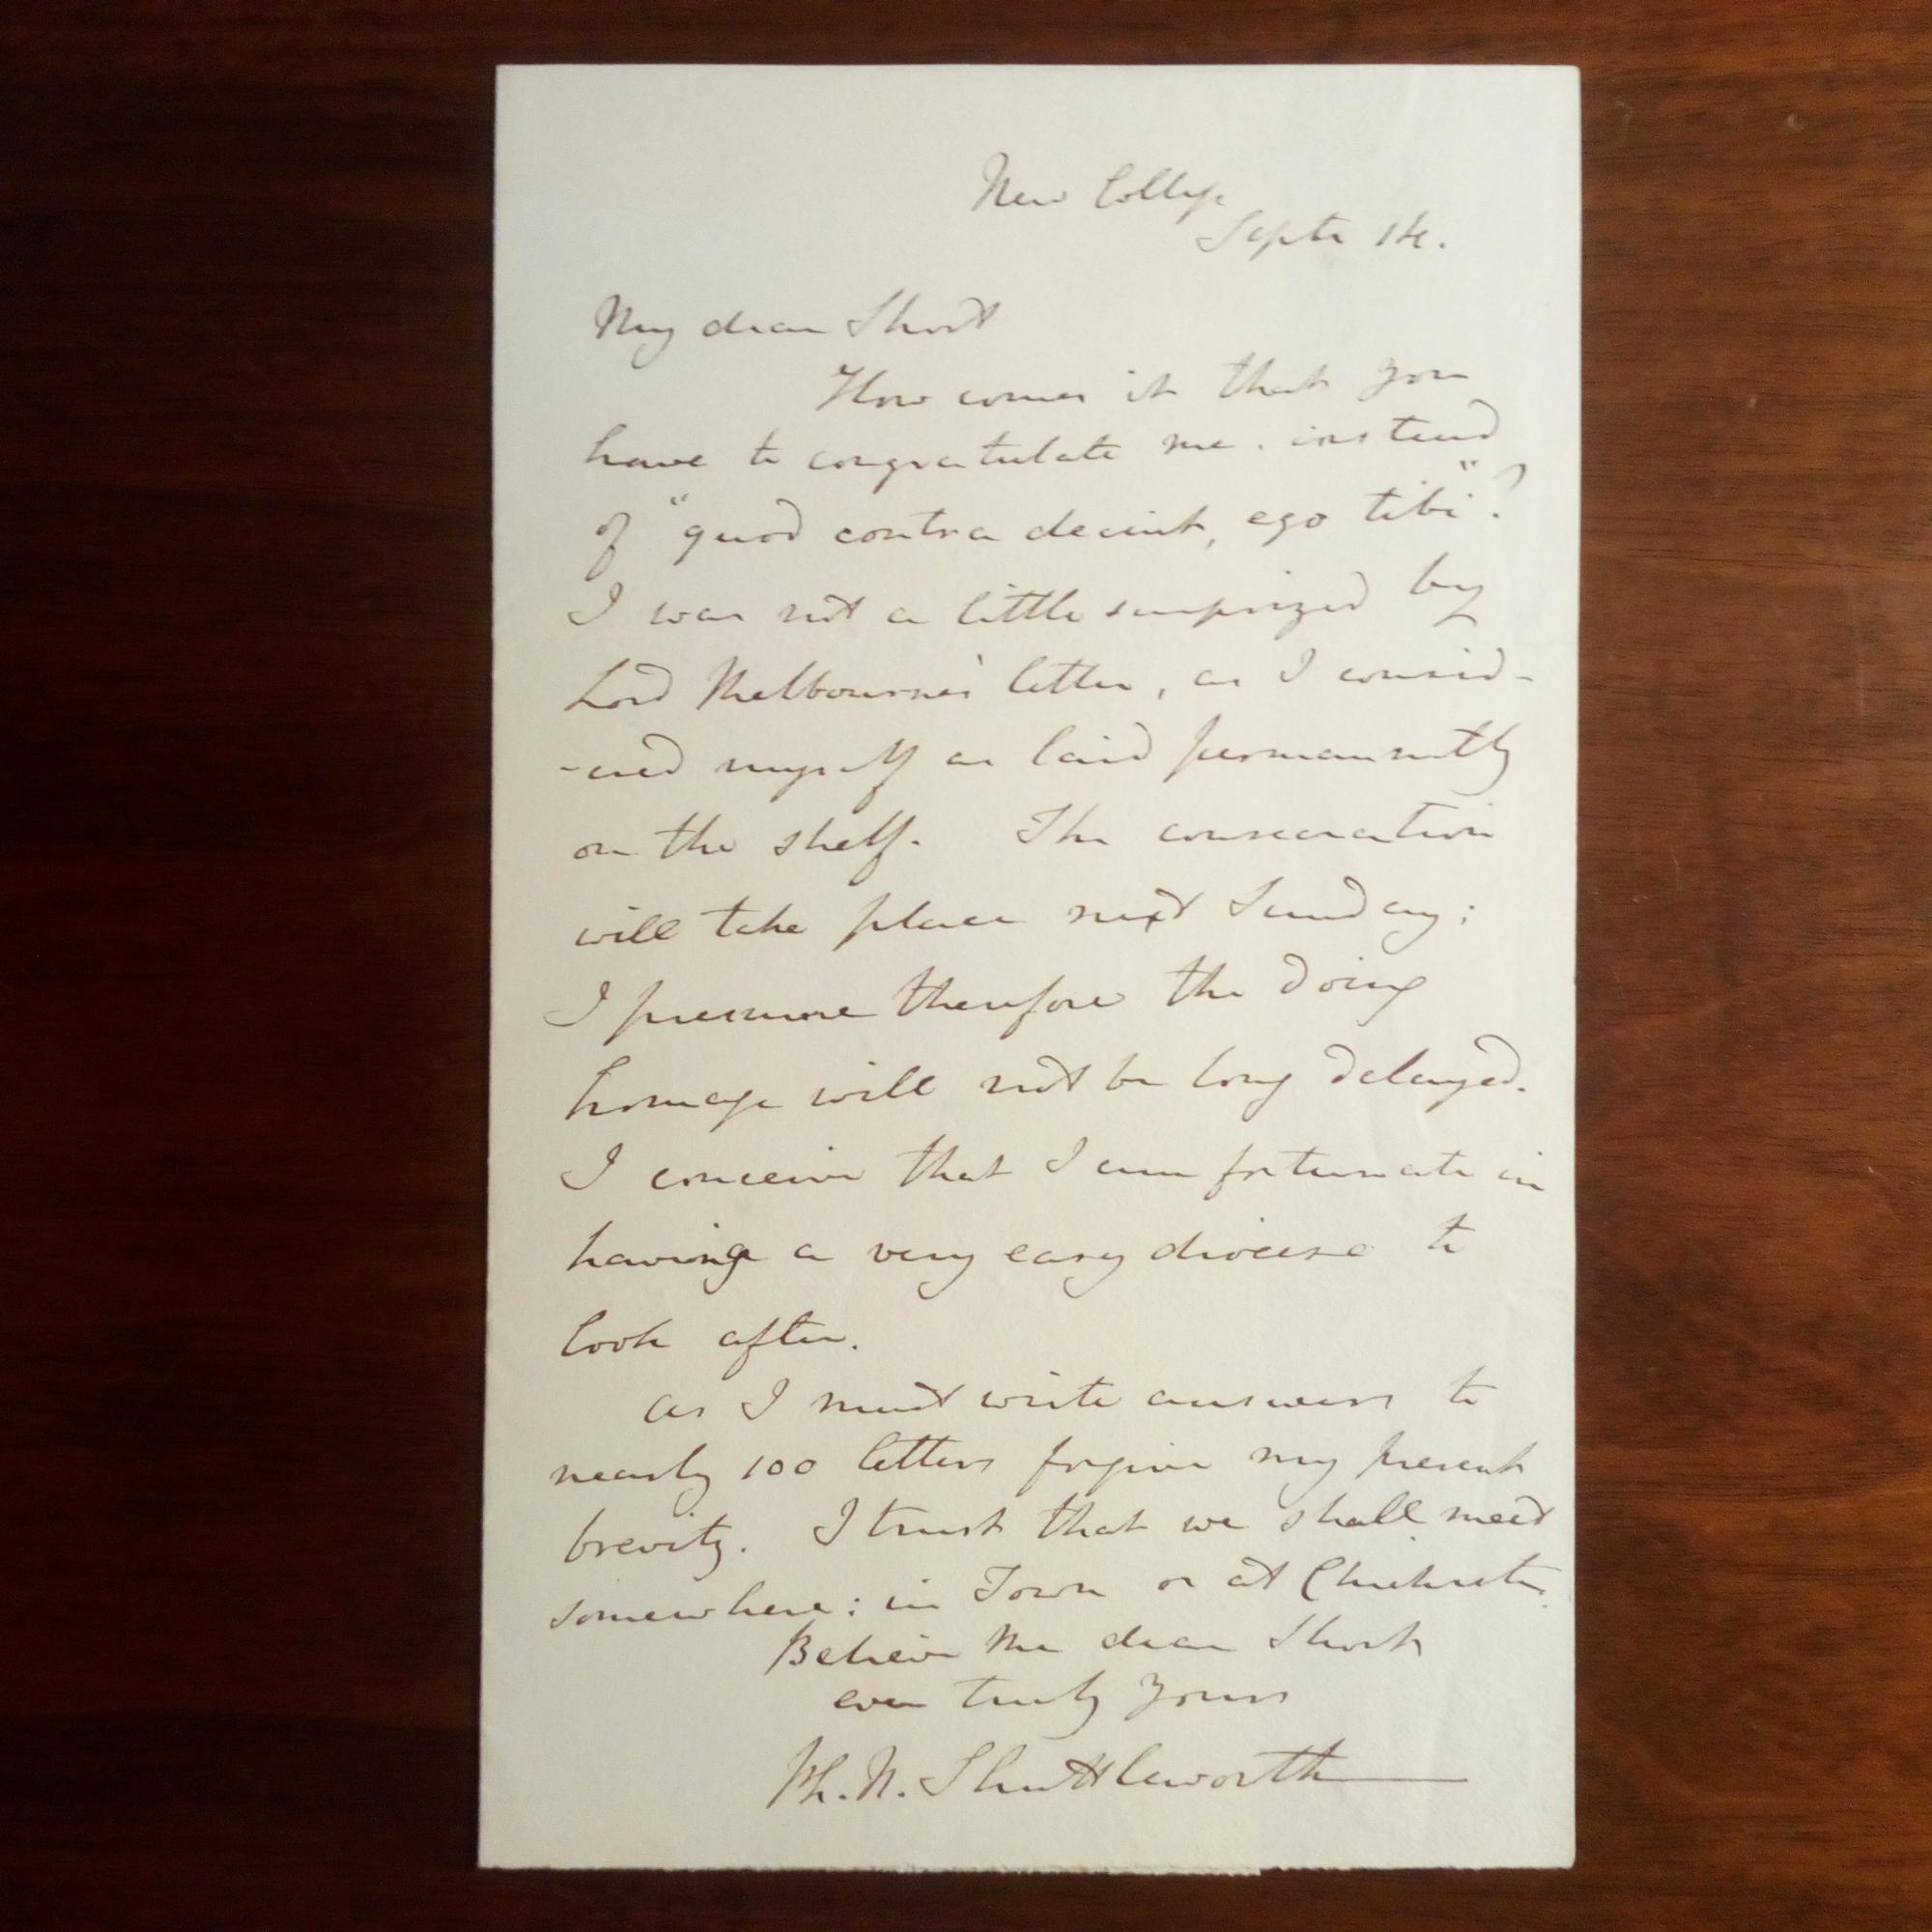 New College
Septr 14.
My dear Short
How comes it that you
have to congratulate me. instead
of "quod contra decuit, ego tibi"?
I was not a little surprized by
Lord Melbourne's letter, as I consid-
-ered myself as laid permanently
on the shelf. The consecration
will take place next Sunday;
I presume therefore the doing
homage will not be long delayed.
I conceive that I am fortunate in
having a very easy diocese to
look after.
as I must write answers to
nearly 100 letters forgive my present
brevity. I trust that we shall meet
somewhere: in Town or at Chichester.
Believe me dear Short
ever truly yours
Ph. N. Shuttleworth